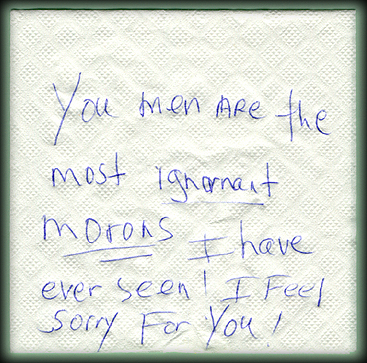 You men ARe the
most Ignornant
morons I have
ever seen! I Feel
Sorry For You!